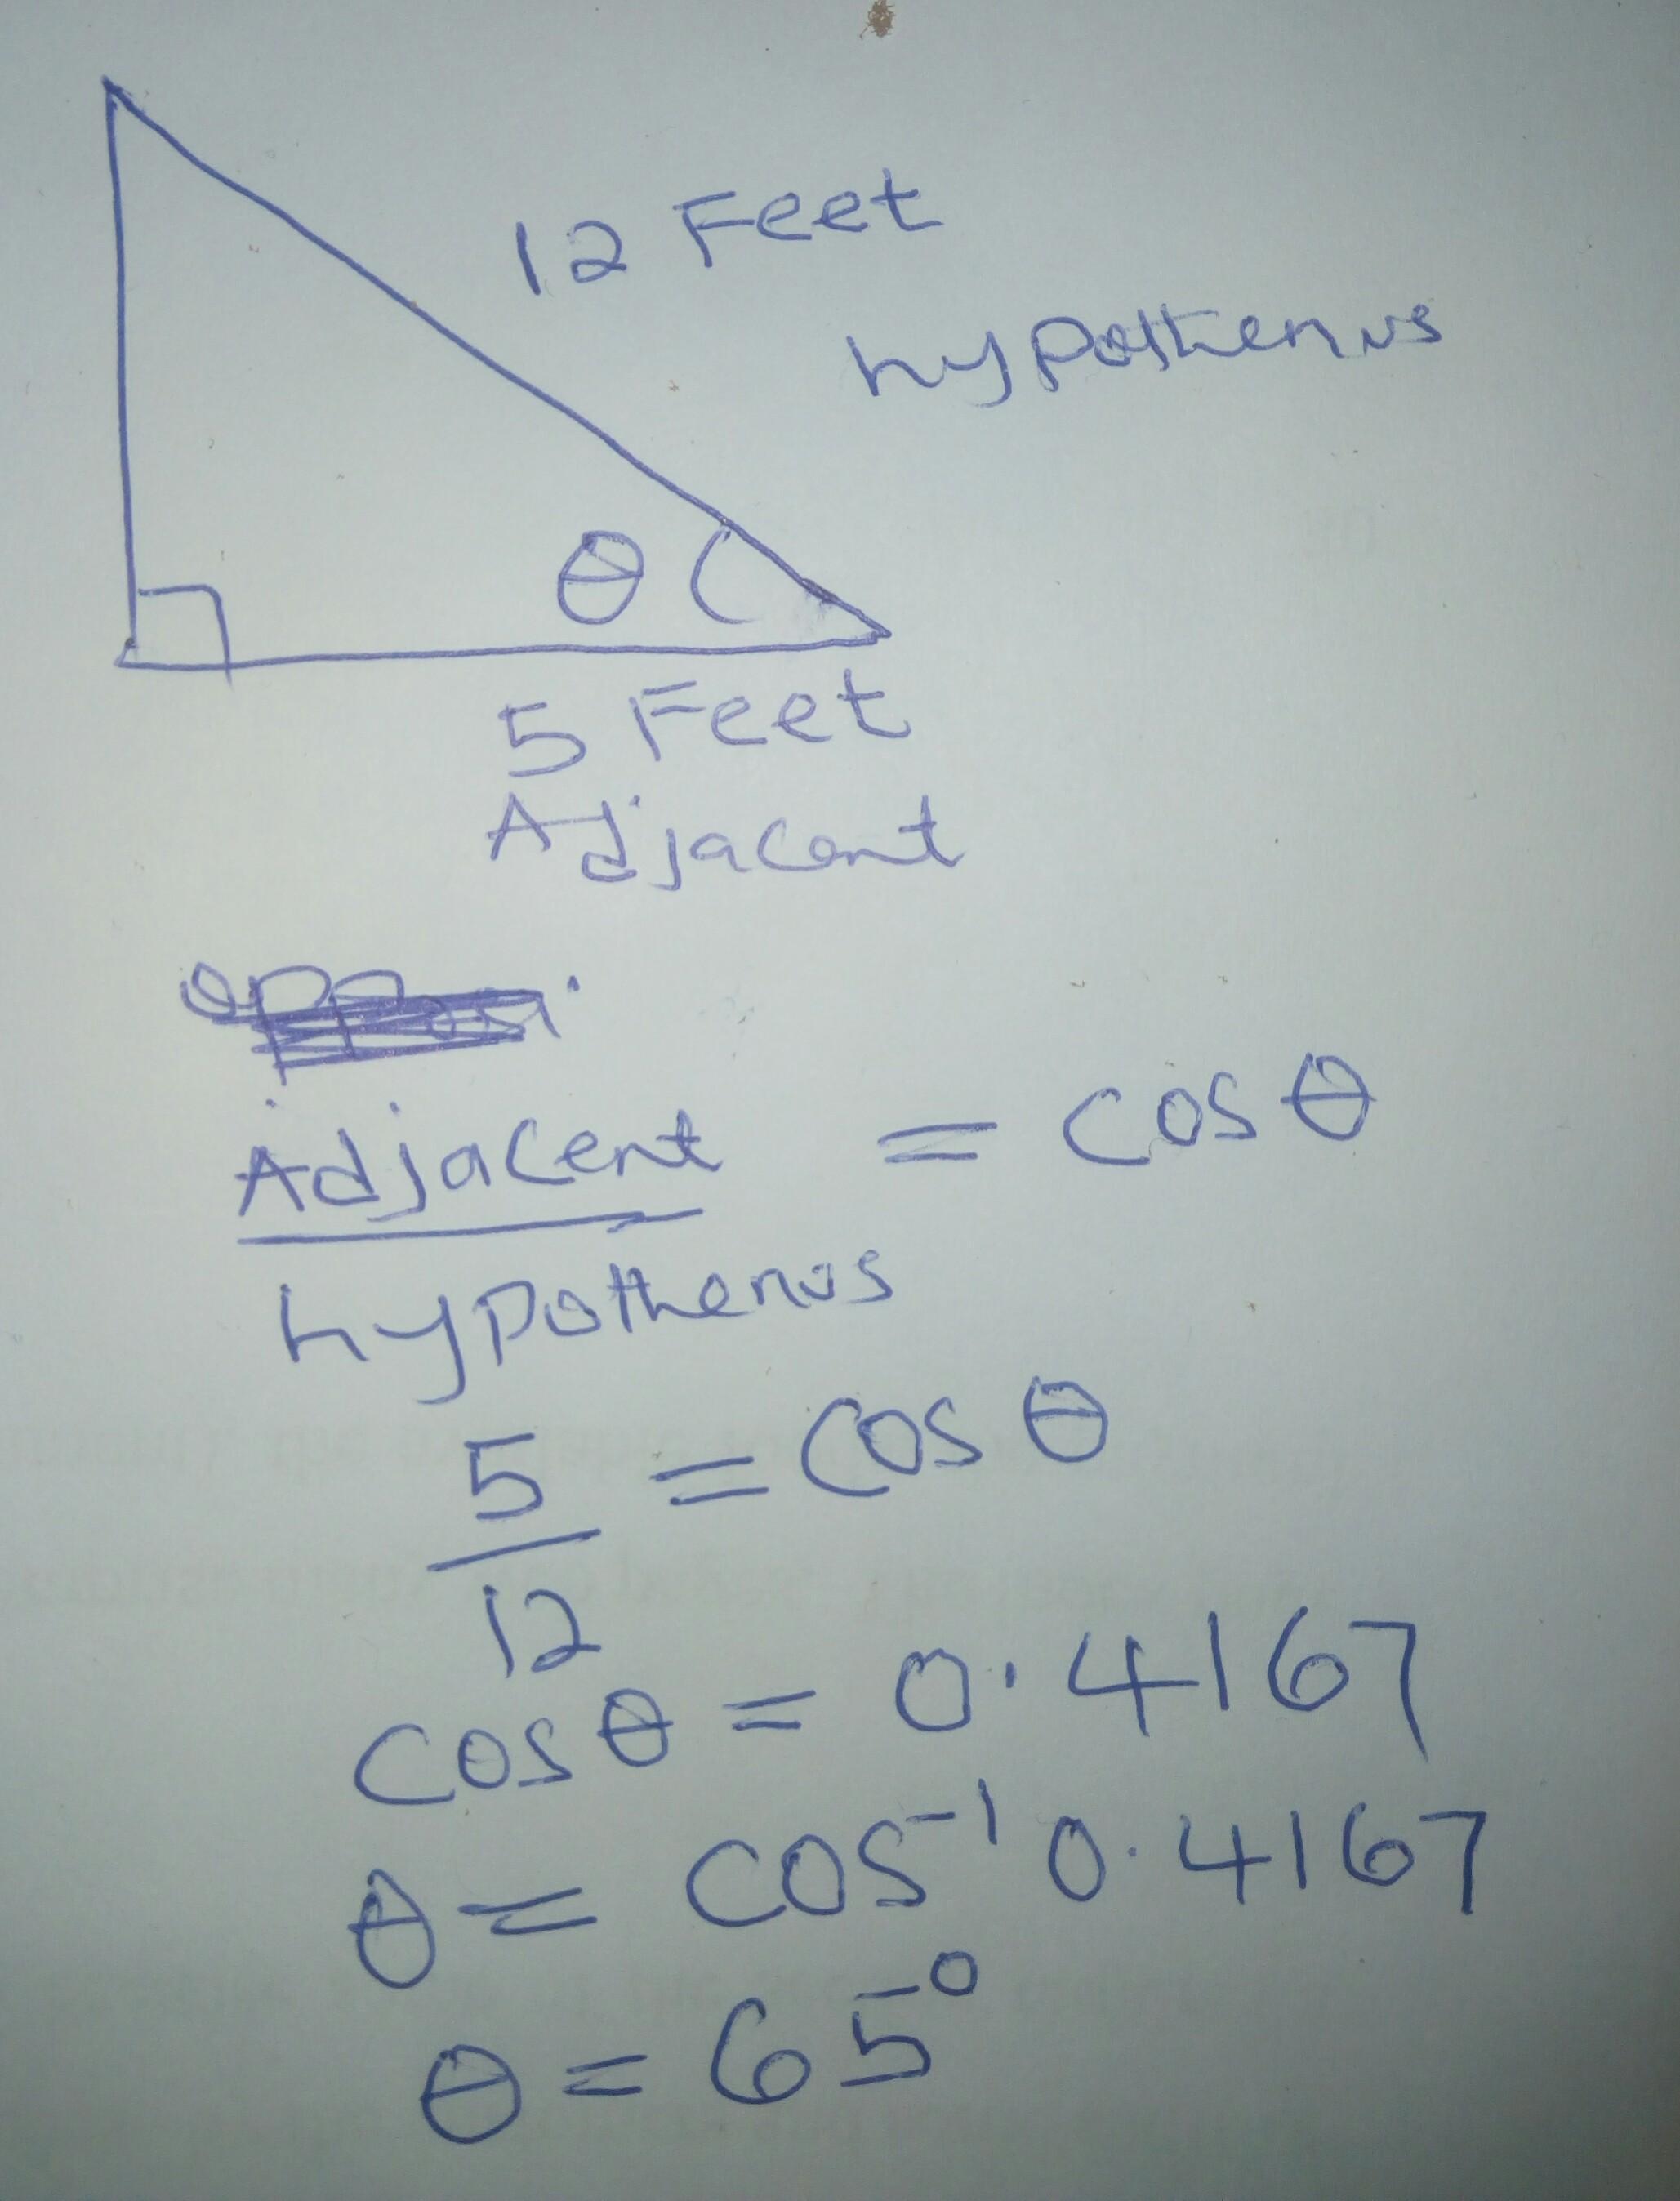 12 Feet
hypothenus
θ
5 Feet
Adjacent
Adjacent = cos θ
hypothenus
5 = cos θ
12
cos θ = 0.4167
θ = cos⁻¹ 0.4167
θ = 65°